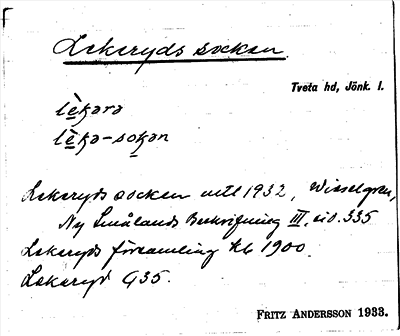 Lekeryds socken
Tveta hd, Jönk. l.
lè̱ḵərə
lè̱ḵə-soḵən
Lekeryds socken mtl 1932, Wieselgren,
Ny Smålands Beskrifning III, sid. 335
Lekeryds församling kb 1900.
Lekeryd G35.
FRITZ ANDERSSON 1933.